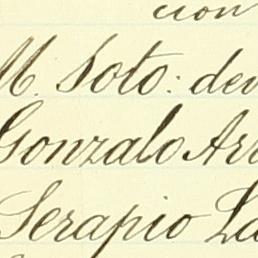 cion
M. Soto: dev
Gonzalo Arr
Serapio La